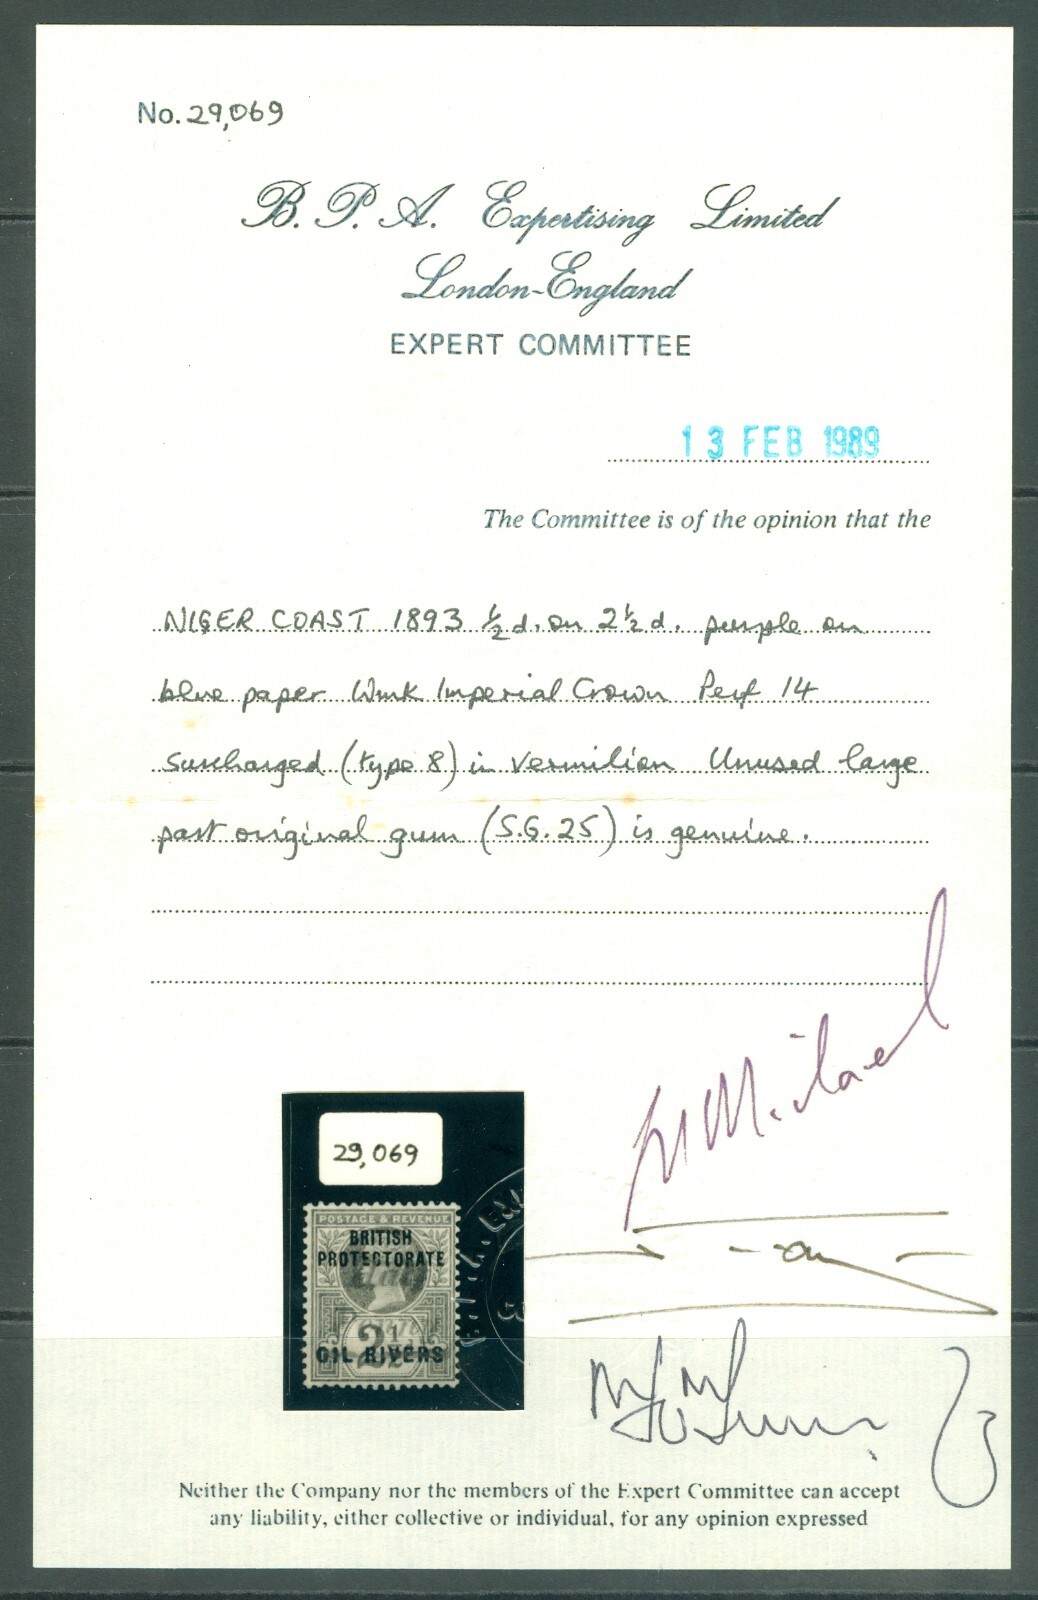 No. 29,069
B. P. A. Expertising Limited
London-England
EXPERT COMMITTEE
13 FEB 1989
The Committee is of the opinion that the
NIGER COAST 1893 ½d. on 2½d. purple on
blue paper Wmk Imperial Crown Perf 14
surcharged (type 8) in vermilion Unused large
part original gum (S.G. 25) is genuine.
Michael
29,069
POSTAGE & REVENUE
BRITISH
PROTECTORATE
2½
OIL RIVERS
Neither the Company nor the members of the Expert Committee can accept
any liability, either collective or individual, for any opinion expressed